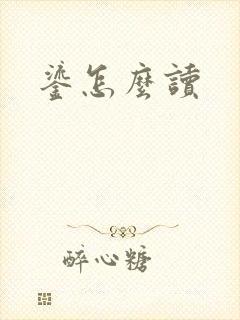 鎏怎麼讀
醉心糖